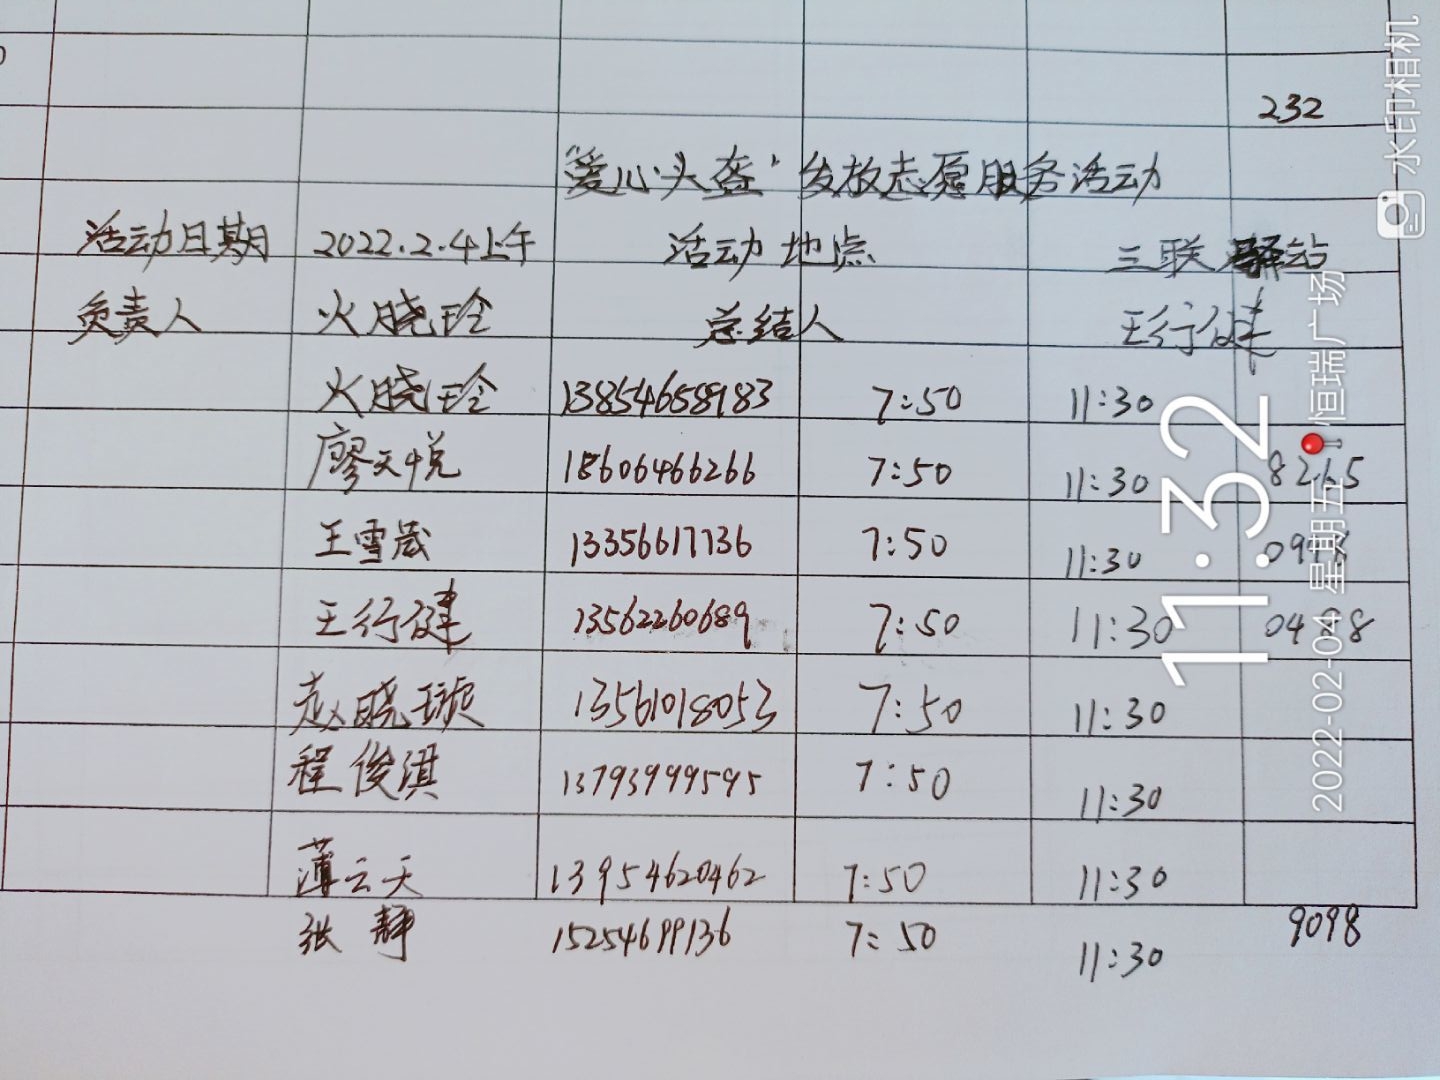 232
“爱心头盔”发放志愿服务活动
活动日期 2022.2.4上午 活动地点 三联驿站
负责人 火晓玲 总结人 王行健
火晓玲 13854658983 7:50 11:30
廖天悦 18606466266 7:50 11:30
王雪崴 13356617736 7:50 11:30
王行健 13562260689 7:50 11:30
赵晓璇 13561018053 7:50 11:30
程俊淇 13793999595 7:50 11:30
薄云天 13954620462 7:50 11:30
张静 15254699136 7:50 11:30 9098
水印相机
11:32
恒瑞广场
2022-02-04 星期五